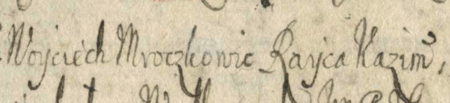 Wojciech Mroczkowic Rayca Kazim̃,